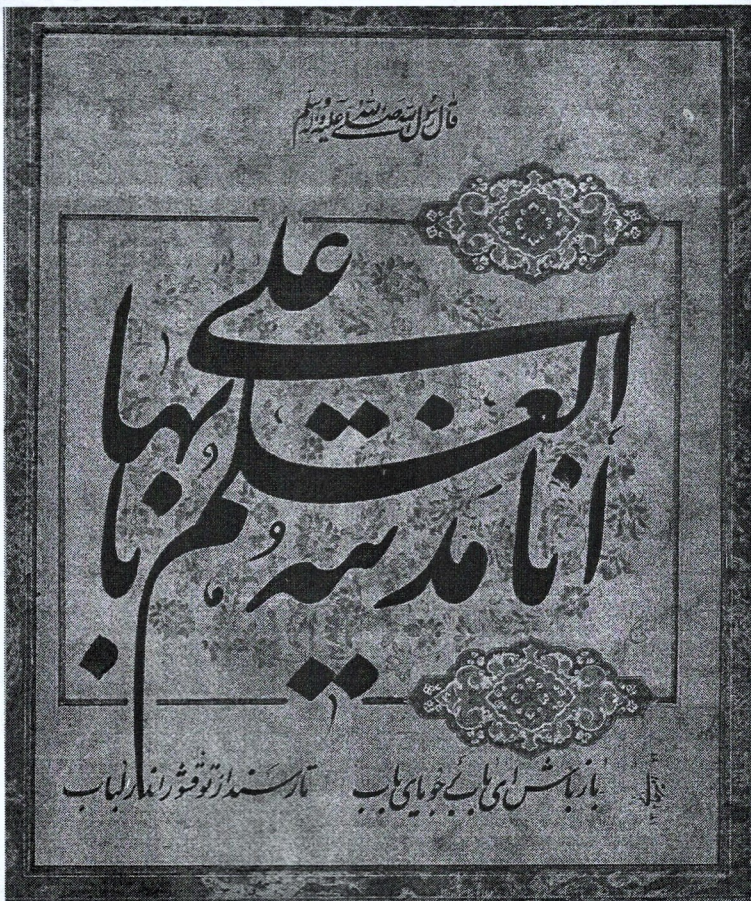 قال رسول الله صلی الله علیه و آله وسلم
انا مدینة العلم و علی بابها
باز باش ای باب بر جویای باب تا رسند از تو قشور اندر لباب